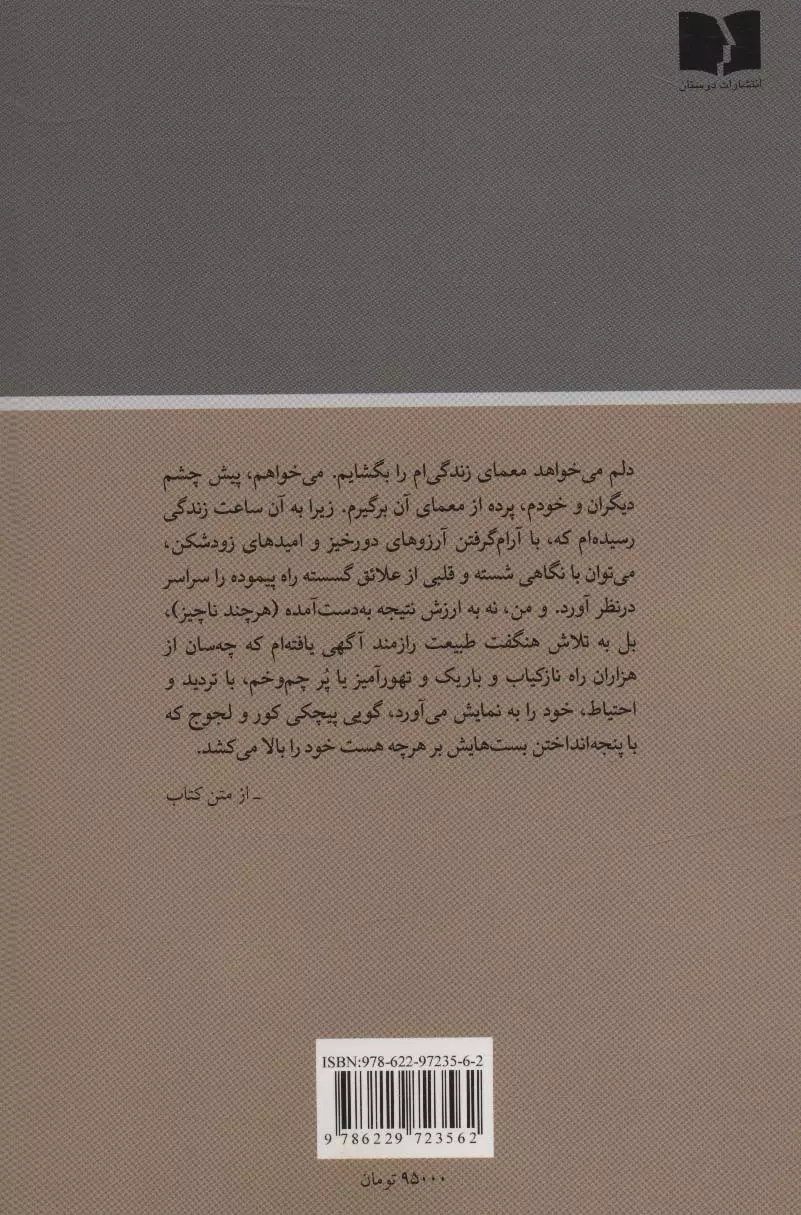 انتشارات درستان
دلم می‌خواهد معمای زندگی‌ام را بگشایم. می‌خواهم، پیش چشم
دیگران و خودم، پرده از معمای آن برگیرم. زیرا به آن ساعت زندگی
رسیده‌ام که، با آرام‌گرفتن آرزوهای دورخیز و امیدهای زودشکن،
می‌توان با نگاهی شسته و قلبی از علائق گسسته راه پیموده را سراسر
درنظر آورد. و من، نه به ارزش نتیجه به‌دست‌آمده (هرچند ناچیز)،
بل به تلاش هنگفت طبیعت رازمند آگهی یافته‌ام که چه‌سان از
هزاران راه نازکیاب و باریک و تهورآمیز یا پُر چم‌وخم، با تردید و
احتیاط، خود را به نمایش می‌آورد، گویی پیچکی کور و لجوج که
با پنجه‌انداختن بست‌هایش بر هرچه هست خود را بالا می‌کشد.
ـ از متن کتاب
ISBN:978-622-97235-6-2
9 786229 723562
۹۵۰۰۰ تومان